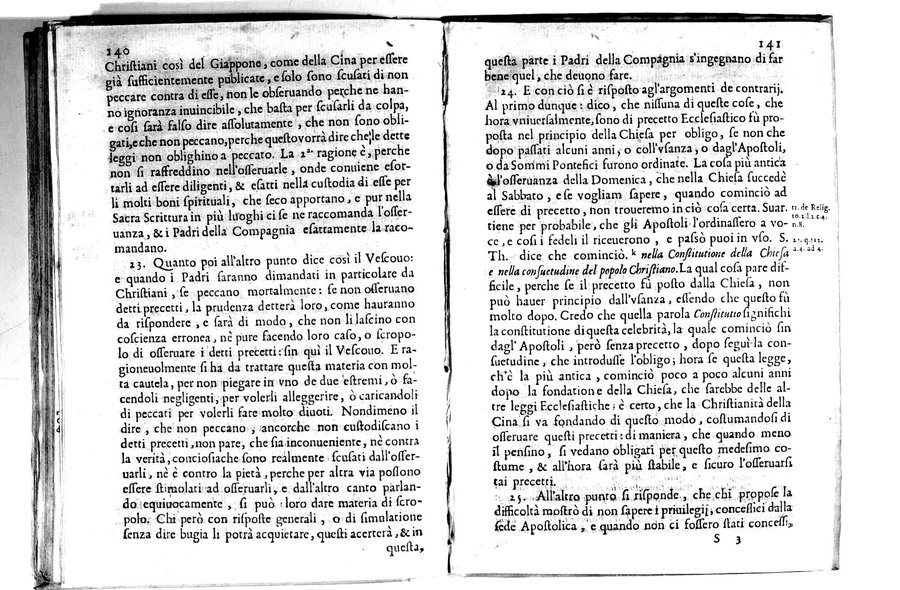 140
Christiani così del Giappone, come della Cina per essere
già sufficientemente publicate, e solo sono scusati di non
peccare contra di esse, non le obseruando perche ne han-
no ignoranza inuincibile, che basta per scusarli da colpa,
e così sarà falso dire assolutamente, che non sono obli-
gati, e che non peccano, perche questo vorrà dire che le dette
leggi non oblighino a peccato. La 2ª ragione è, perche
non si raffreddino nell'osseruarle, onde conuiene esor-
tarli ad essere diligenti, & esatti nella custodia di esse per
li molti boni spirituali, che seco apportano, e pur nella
Sacra Scrittura in più luoghi ci se ne raccomanda l'osser-
uanza, & i Padri della Compagnia esattamente la raco-
mandano.
23. Quanto poi all'altro punto dice così il Vescouo:
e quando i Padri saranno dimandati in particolare da
Christiani, se peccano mortalmente: se non osseruano
detti precetti, la prudenza detterà loro, come hauranno
da rispondere, e sarà di modo, che non li lascino con
coscienza erronea, nè pure facendo loro caso, o scropo-
lo di osseruare i detti precetti: sin quì il Vescouo. E ra-
gioneuolmente si ha da trattare questa materia con mol-
ta cautela, per non piegare in vno de due estremi, ò fa-
cendoli negligenti, per volerli alleggerire, ò caricandoli
di peccati per volerli fare molto diuoti. Nondimeno il
dire, che non peccano, ancorche non custodiscano i
detti precetti, non pare, che sia inconueniente, nè contra
la verità, conciosiache sono realmente scusati dall'osser-
uarli, nè è contro la pietà, perche per altra via possono
essere stimolati ad osseruarli, e dall'altro canto parlan-
do equiuocamente, si può loro dare materia di scro-
polo. Chi però con risposte generali, o di simulatione
senza dire bugia li potrà acquietare, questi acerterà, & in
questa,
141
questa parte i Padri della Compagnia s'ingegnano di far
bene quel, che deuono fare.
24. E con ciò si è risposto agl'argomenti de contrarij.
Al primo dunque: dico, che nissuna di queste cose, che
hora vniuersalmente, sono di precetto Ecclesiastico fù pro-
posta nel principio della Chiesa per obligo, se non che
dopo passati alcuni anni, o coll'vsanza, o dagl'Apostoli,
o da Sommi Pontefici furono ordinate. La cosa più antica
è l'osseruanza della Domenica, che nella Chiesa succedè
al Sabbato, e se vogliam sapere, quando cominciò ad
essere di precetto, non troueremo in ciò cosa certa. Suar.
tiene per probabile, che gli Apostoli l'ordinassero a vo-
ce, e così i fedeli il riceuerono, e passò puoi in vso. S.
Th. dice che cominciò. k nella Constitutione della Chiesa
e nella consuetudine del popolo Christiano. La qual cosa pare dif-
ficile, perche se il precetto fù posto dalla Chiesa, non
può hauer principio dall'vsanza, essendo che questo fù
molto dopo. Credo che quella parola Constitutio significhi
la constitutione di questa celebrità, la quale cominciò sin
dagl'Apostoli, però senza precetto, dopo seguì la con-
suetudine, che introdusse l'obligo; hora se questa legge,
ch'è la più antica, cominciò poco a poco alcuni anni
dopo la fondatione della Chiesa, che sarebbe delle al-
tre leggi Ecclesiastiche; è certo, che la Christianità della
Cina si va fondando di questo modo, costumandosi di
osseruare questi precetti: di maniera, che quando meno
il pensino, si vedano obligati per questo medesimo co-
stume, & all'hora sarà più stabile, e sicuro l'osseruarsi
tai precetti.
25. All'altro punto si risponde, che chi propose la
difficoltà mostrò di non sapere i priuilegij, concessici dalla
sede Apostolica, e quando non ci fossero stati concessi,
S 3
tr. de Relig.
n.8.